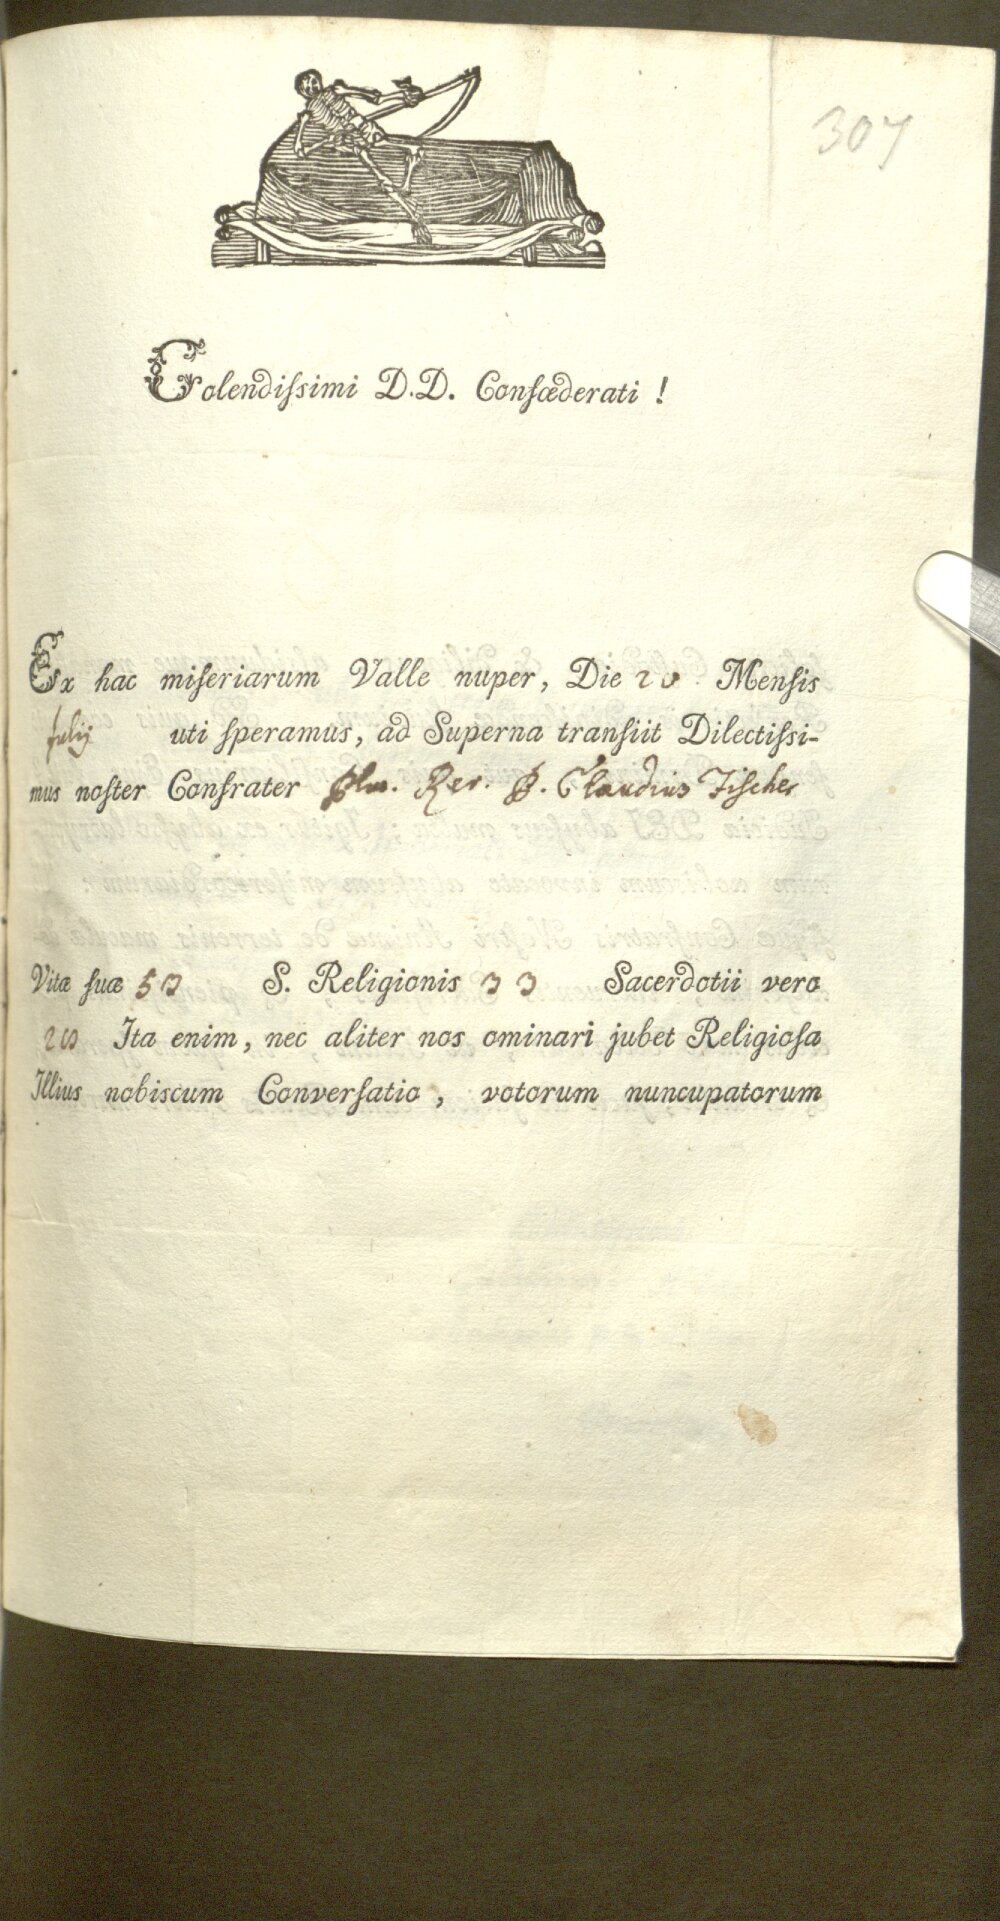 307
Colendiſsimi D.D. Confœderati !
Ex hac miſeriarum Valle nuper, Die 20 Menſis
Julij uti ſperamus, ad Superna tranſiit Dilectiſsi-
mus noſter Confrater Plm. Rev. P. Claudius Fiſcher
Vitæ ſuæ 53 S. Religionis 33 Sacerdotii vero
Ita enim, nec aliter nos ominari jubet Religioſa
Illius nobiscum Converſatio, votorum nuncupatorum